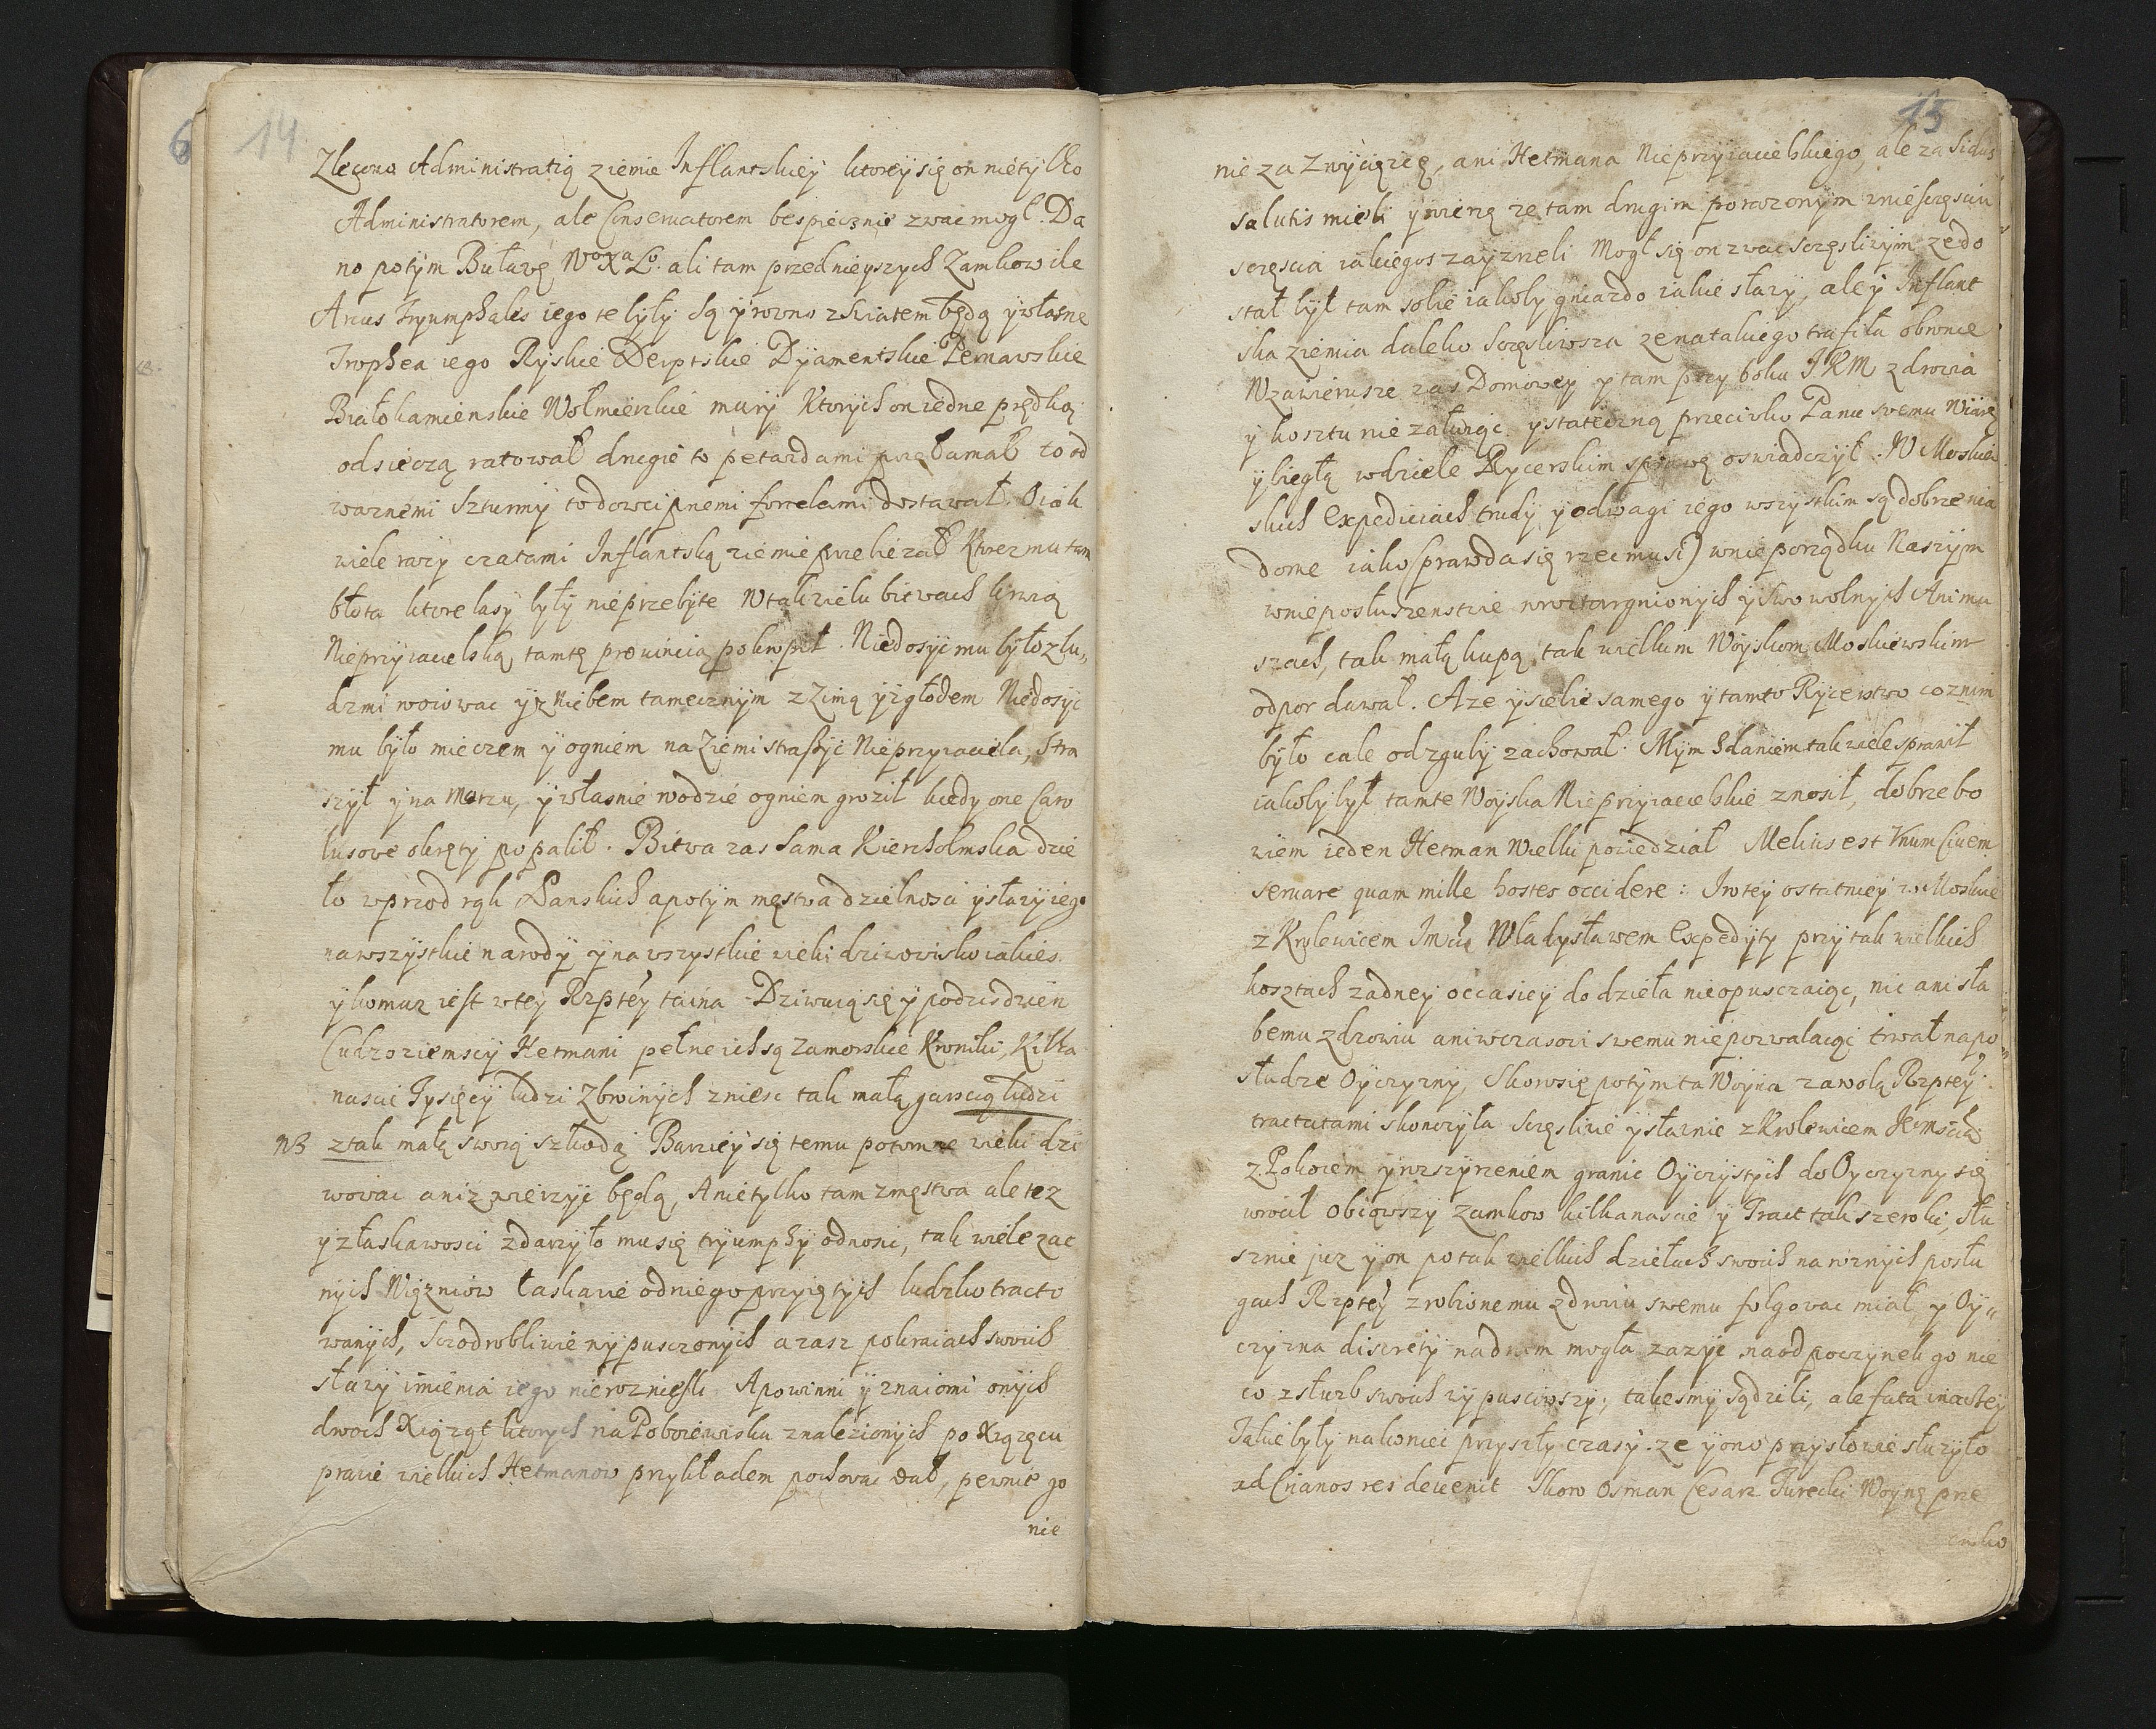 6
14
Zlecono Administratią ziemie Inflantskiey ktorey się on nietylko
Administratorem, ale Conseruatorem bespiecznie zwac mogł. Da
no potym Buławę WoXaLo. ali tam przednieyszych Zamkow ile
Arcus Tryumphales iego te były są y rowno z swiatem będą y własne
Trophea iego Ryskie Derptskie Dyamentskie Pernawskie
Białokamienskie Wolmierskie mury Ktorych on iedne prędką
odsieczą ratował drugie to petardami przełamał to od
waznemi szturmy to dowcipnemi fortelami dostawał. O iak
wiele razy czatami Inflantską ziemie przebiezał Ktorez mu tam
błota ktore lasy były nieprzebyte W tak wielu bitwach krwią
Nieprzyiacielską tamtę prouincią pokropił. Niedosyc mu było z lu„
dzmi woiowac y z niebem tamecznym z zimą y z głodem Niedosyc
mu było mieczem y ogniem na Ziemi straszyc Nieprzyiaciela, Stra
szył y na Morzu, y własnie w wodzie ogniem groził kiedy one Caro
lusowe okręty popalił. Bitwa zas sama Kiercholmska dzie
ło wprzod rąk Panskich a potym męstwa dzielnosci y sławy iego
na wszystkie narody y na wszystkie wieki dziwowisko iakies
y komuz iest w tey Rzptey taina. Dziwuią się y podzisdzien
Cudzoziemscy Hetmani pełne ich są Zamorskie Kroniki, Kilka
nascie Tysięcy ludzi Zbroinych zniesc tak małą garscią ludzi
NB z tak małą swoią szkodą Barziey się temu potomne wieki dzi
wowac aniz wierzyc będą, A nietylko tam z męstwa ale tez
y z łaskawosci zdarzyło mu się tryumphy odnosic, tak wiele zac
nych Więzniow łaskawie od niego przyiętych ludzko tracto
wanych, sczodrobliwie wypusczonych a zasz po kraiach swoich
sławy imienia iego nieroznieśli. A powinni y znaiomi onych
dwoch Xiąząt ktorych na Poboiewisku znalezionych po Xiązęcu
prawie wielkich Hetmanow przykładem pochowac dał, pewnie go
nie
15
nie za Zwycięzcę, ani Hetmana Nieprzyiacielskiego, ale za Sidus
salutis mieli y wierzę ze tam drugim porazonym w niesczęsciu
sczęscia iakiegos zayzrzeli Mogł się on zwac sczęsliwym ze do
stał był tam sobie iakoby gniazdo iakie sławy, ale y Inflant
ska ziemia daleko sczęsliwsza ze na takiego trafiła obronce
W zawierusze zas Domowey y tam przy boku JKM zdrowia
y kosztu nie załuiąc y stateczną przeciwko Panu swemu Wiarę
y biegłą w dziele Rycerskim sprawę oswiadczył. W Moskiew
skich Expediciach trudy y odwagi iego wszystkim są dobrze wia
dome iako (prawda się rzec musi) w nieporządku Naszym
w nieposłuszenstwie w roztargnionych y swowolnych Animu
szach, tak małą kupą tak wielkim Woyskom Moskiewskim
odpor dawał. Aze y siebie samego y tamto Rycerstwo co z nim
było cale od zguby zachował. Mym zdaniem tak wiele sprawił
iakoby był tamte Woyska Nieprzyiacielskie znosił, dobrze bo
wiem ieden Hetman Wielki powiedział Melius est Vnum Ciuem
seruare quam mille hostes occidere: I w tey ostatniey w Moskwie
z Krolewicem Imcią Władysławem Expedyty przy tak wielkich
kosztach zadney occasiey do dzieła nieopusczaiąc, nic ani sła
bemu zdrowiu ani wczasowi swemu niepozwalaiąc trwał na po„
słudze Oyczyzny. Skoro się potym ta Woyna za wolą Rzptey
tractatami skonczyła sczęsliwie y sławnie z Krolewicem Jemscią
z Pokoiem y rozszyrzeniem granic Oyczystych do Oyczyzny się
wrocił Obiąwszy Zamkow kilkanascie y Tract tak szeroki, Słu
sznie iuz y on po tak wielkich dziełach swoich na roznych posłu
gach Rzptey zrobionemu zdrowiu swemu folgowac miał, y Oy„
czyzna discrety nad nim mogła zazyc na odpoczynek go nie
co z słuzb swoich wypusciwszy, takesmy sądzili, ale fata inaczey
Takie były nakoniec przyszły czasy ze y ono przysłowie słuzyło
ad Trianos res deuenit Skoro Osman Cesarz Turecki Woynę prze
ciwko